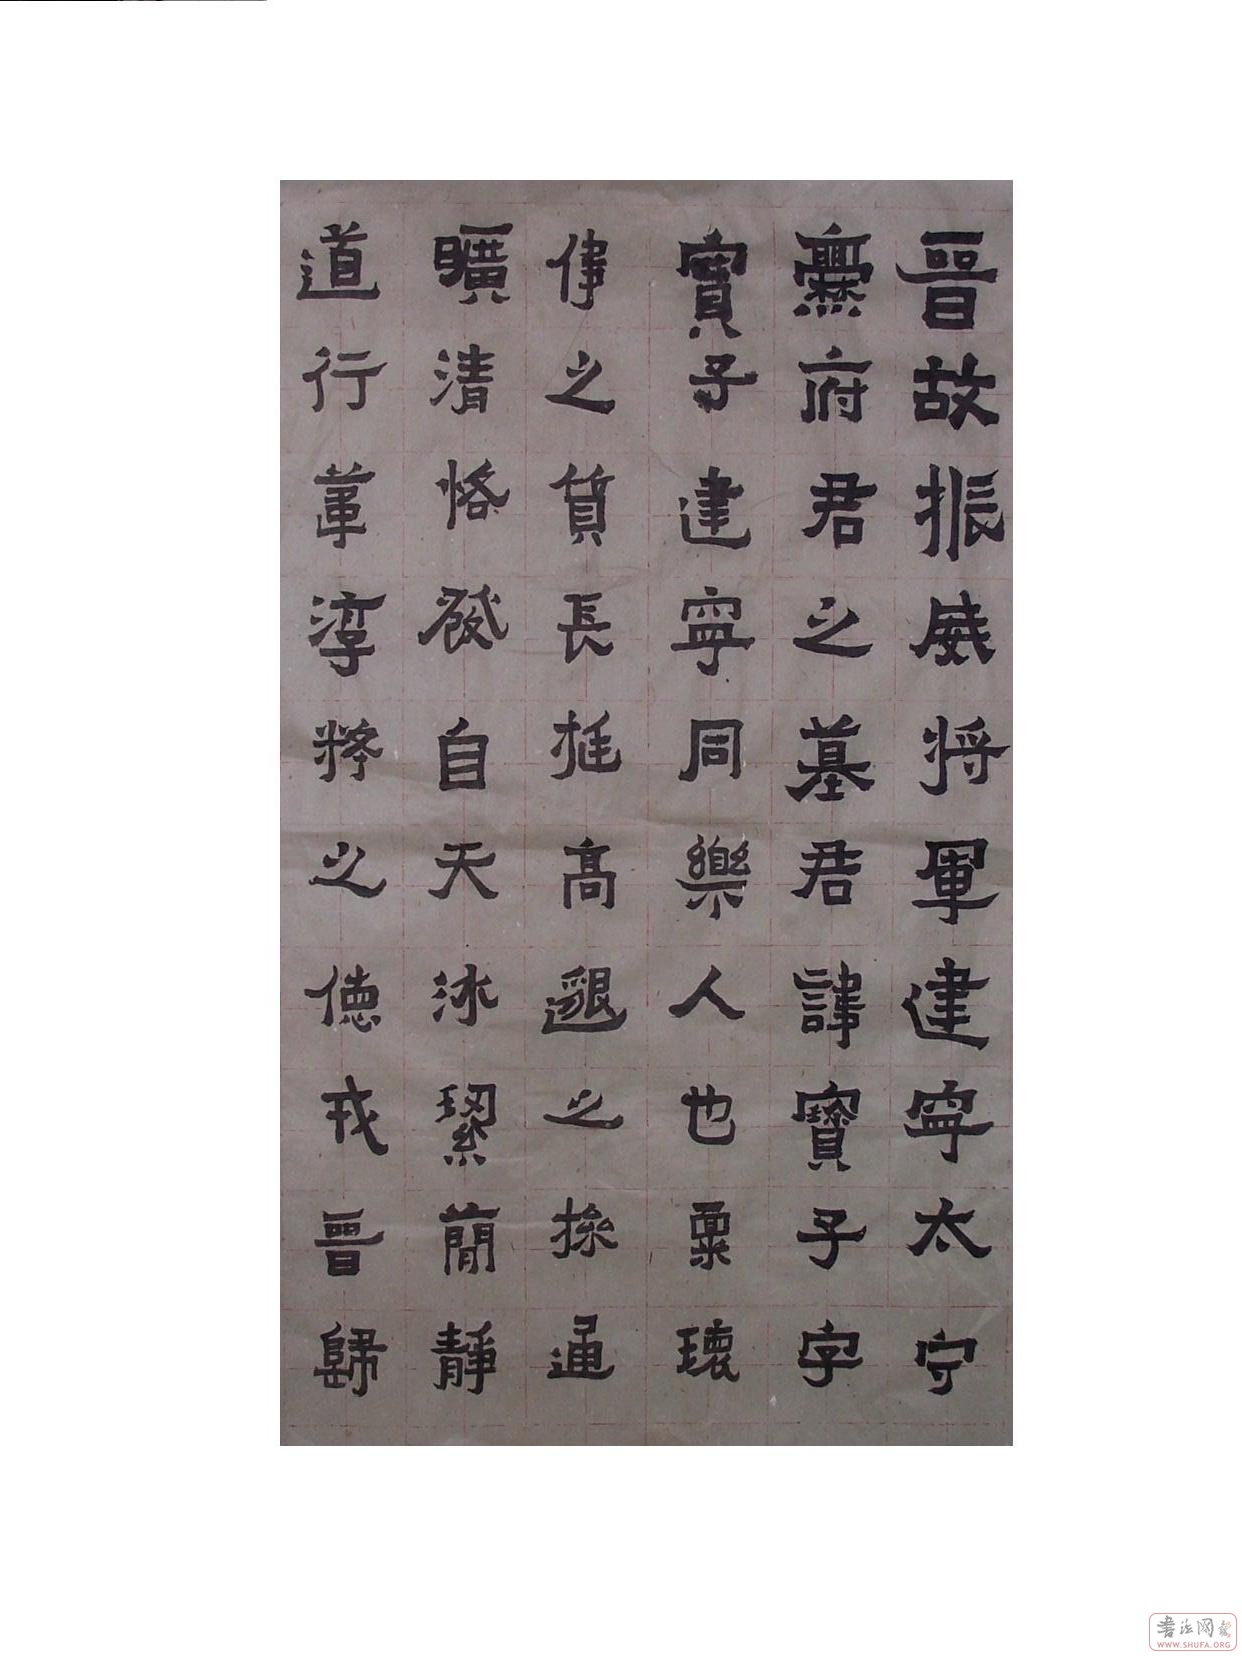 晉故振威将軍建寧太守
爨府君之墓君諱寶子字
寶子建寧同樂人也禀瓌
偉之質長挺高邈之操通
曠清恪發自天然潔蕳靜
道行葦淳粹之德戎晉歸
书法网
WWW.SHUFA.ORG